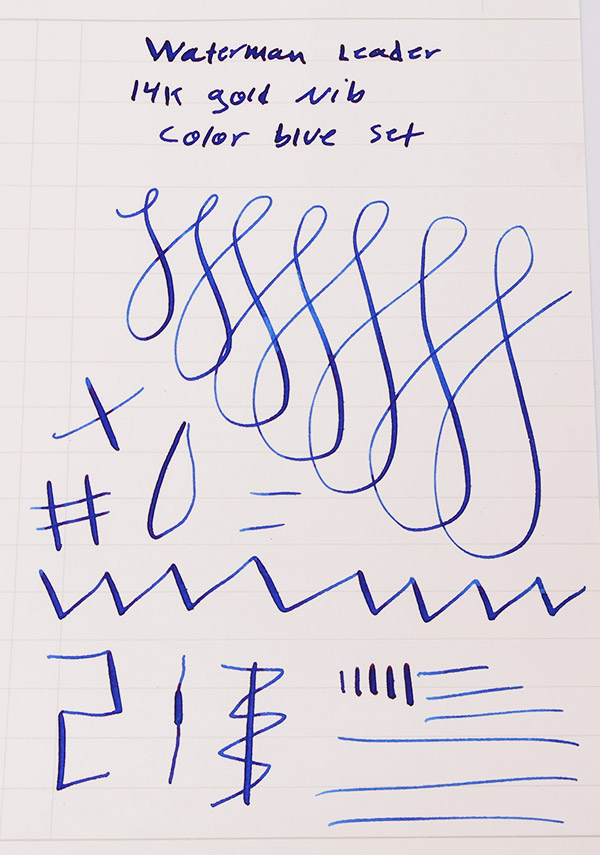 Waterman Leader
14K gold Nib
Color blue set